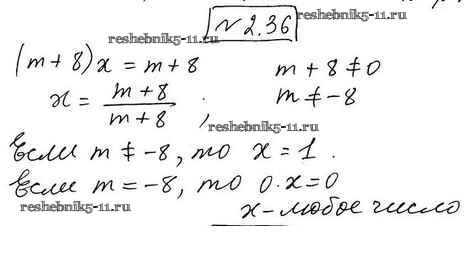 № 2.36
reshebnik5-11.ru
reshebnik5-11.ru
(m+8)x = m+8 m+8≠0
x = (m+8)/(m+8), m≠-8
reshebnik5-11.ru
Если m≠-8, то x=1.
Если m=-8, то 0·x=0
reshebnik5-11.ru
x-любое число